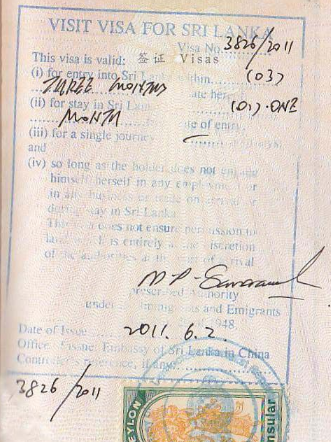 VISIT VISA FOR SRI LANKA
Visa No. 3826/2011
This visa is valid: 签证 Visas
(i) for entry into Sri Lanka within (03)
THREE MONTHS date hereof
(ii) for stay in Sri Lanka (01) ONE
MONTH date of entry
(iii) for a single journey
and
(iv) so long as the holder does not engage
himself/herself in any employment or
in any business or trade on arrival or
during stay in Sri Lanka
This visa does not ensure permission to
land which is entirely at the discretion
of the authorities at the port of arrival
Prescribed Authority
under Immigrants and Emigrants
1948.
Date of Issue 2011. 6. 2.
Office of Issue: Embassy of Sri Lanka in China
reference, if any:
3826/2011
CEYLON
Consular